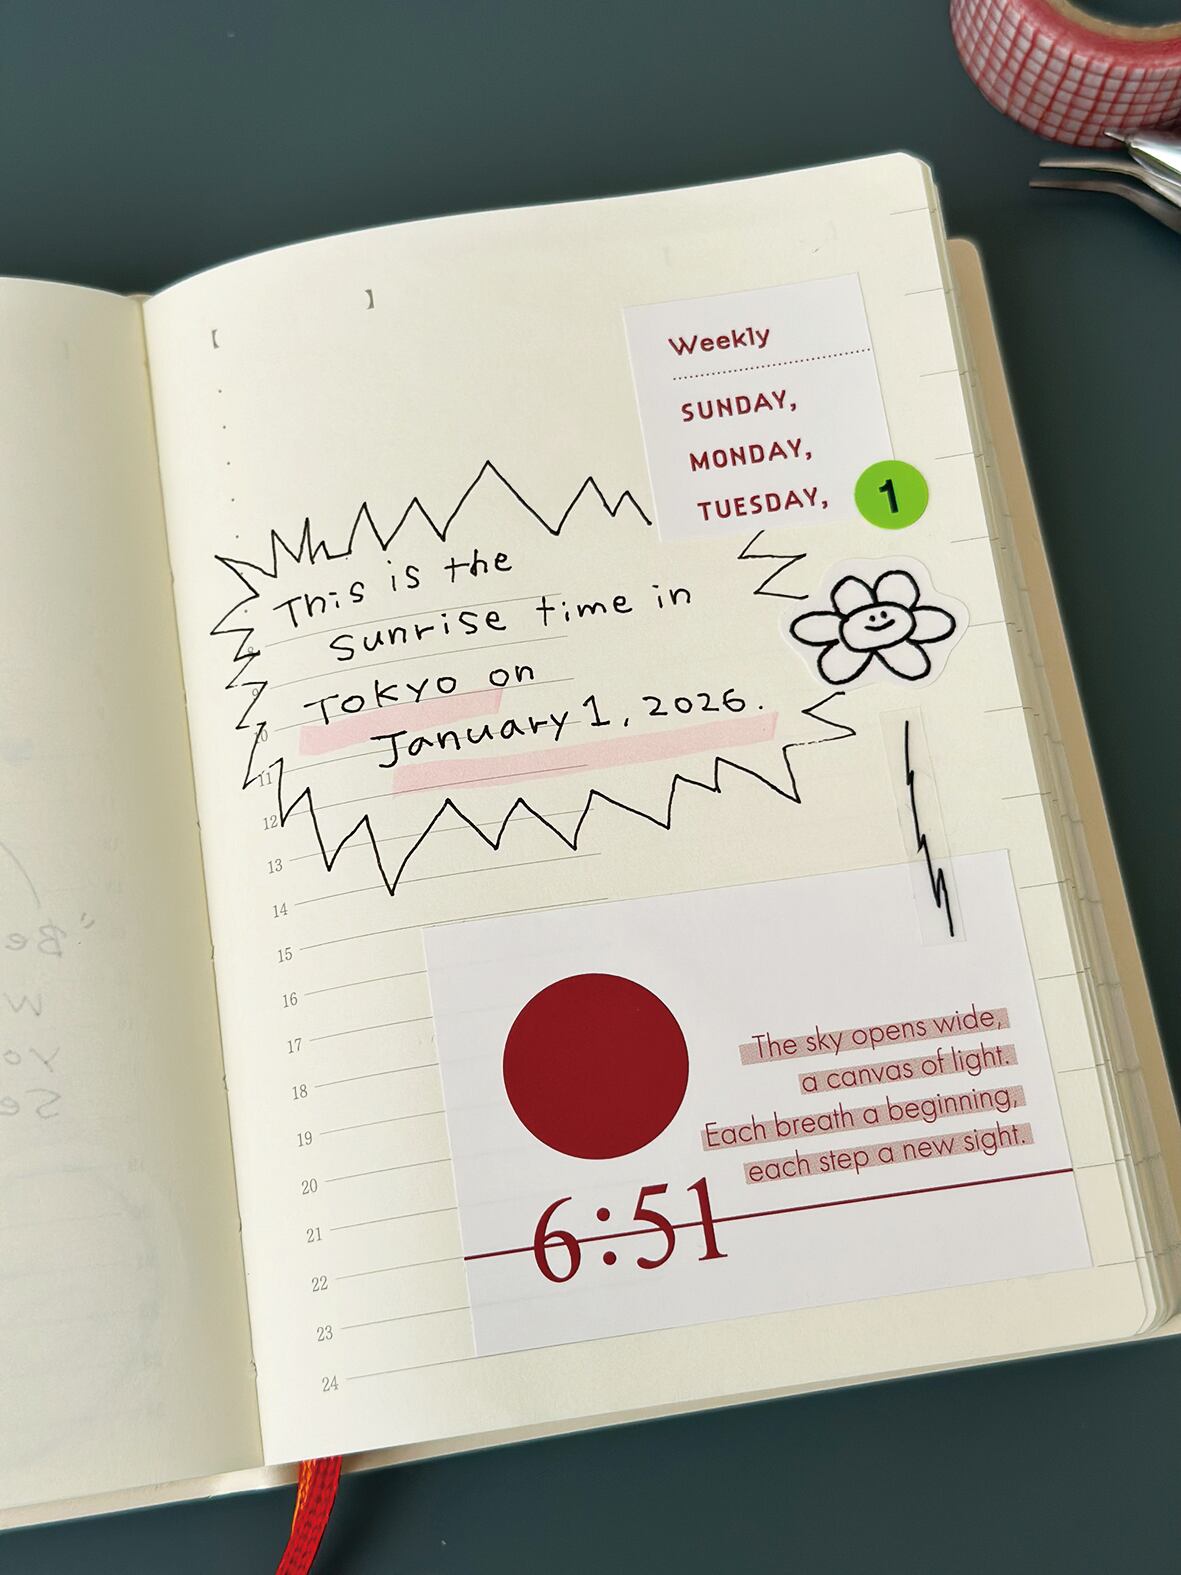 【 】
Weekly
SUNDAY,
MONDAY,
TUESDAY,
1
This is the
sunrise time in
Tokyo on
January 1, 2026.
9
10
11
12
13
14
15
16
17
18
19
20
21
22
23
24
The sky opens wide,
a canvas of light.
Each breath a beginning,
each step a new sight.
6:51